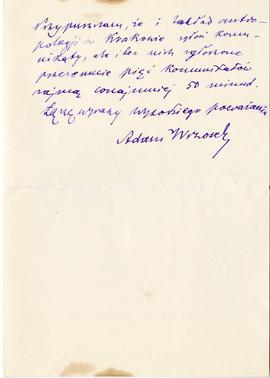 Przypuszczam, że i zakład antro-
pologji w Krakowie zgłosi komu-
nikaty, ale i bez nich zgłoszone
przezemnie pięć komunikatów
zajmą conajmniej 50 minut.
Łączę wyrazy wysokiego poważania
Adam Wrzosek